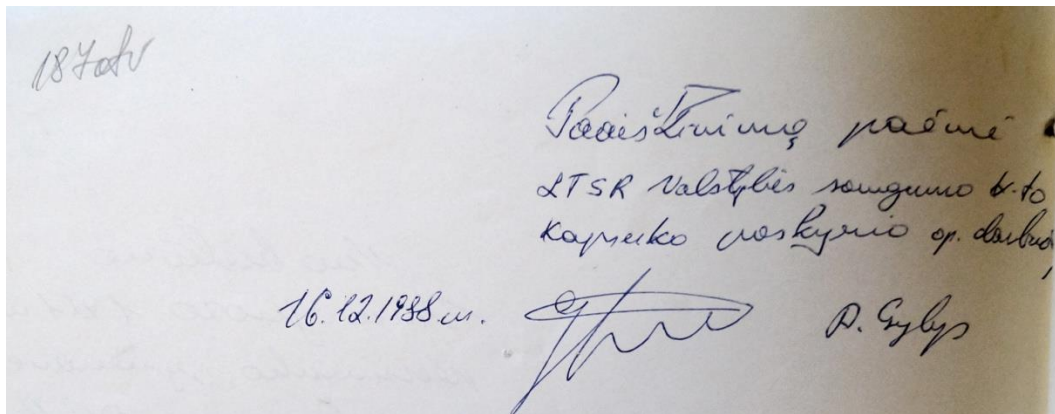 Paaiškinimą paėmė
LTSR Valstybės saugumo k-to
Kapsuko poskyrio op. darbuo
16.12.1988 m.
A. Gylys